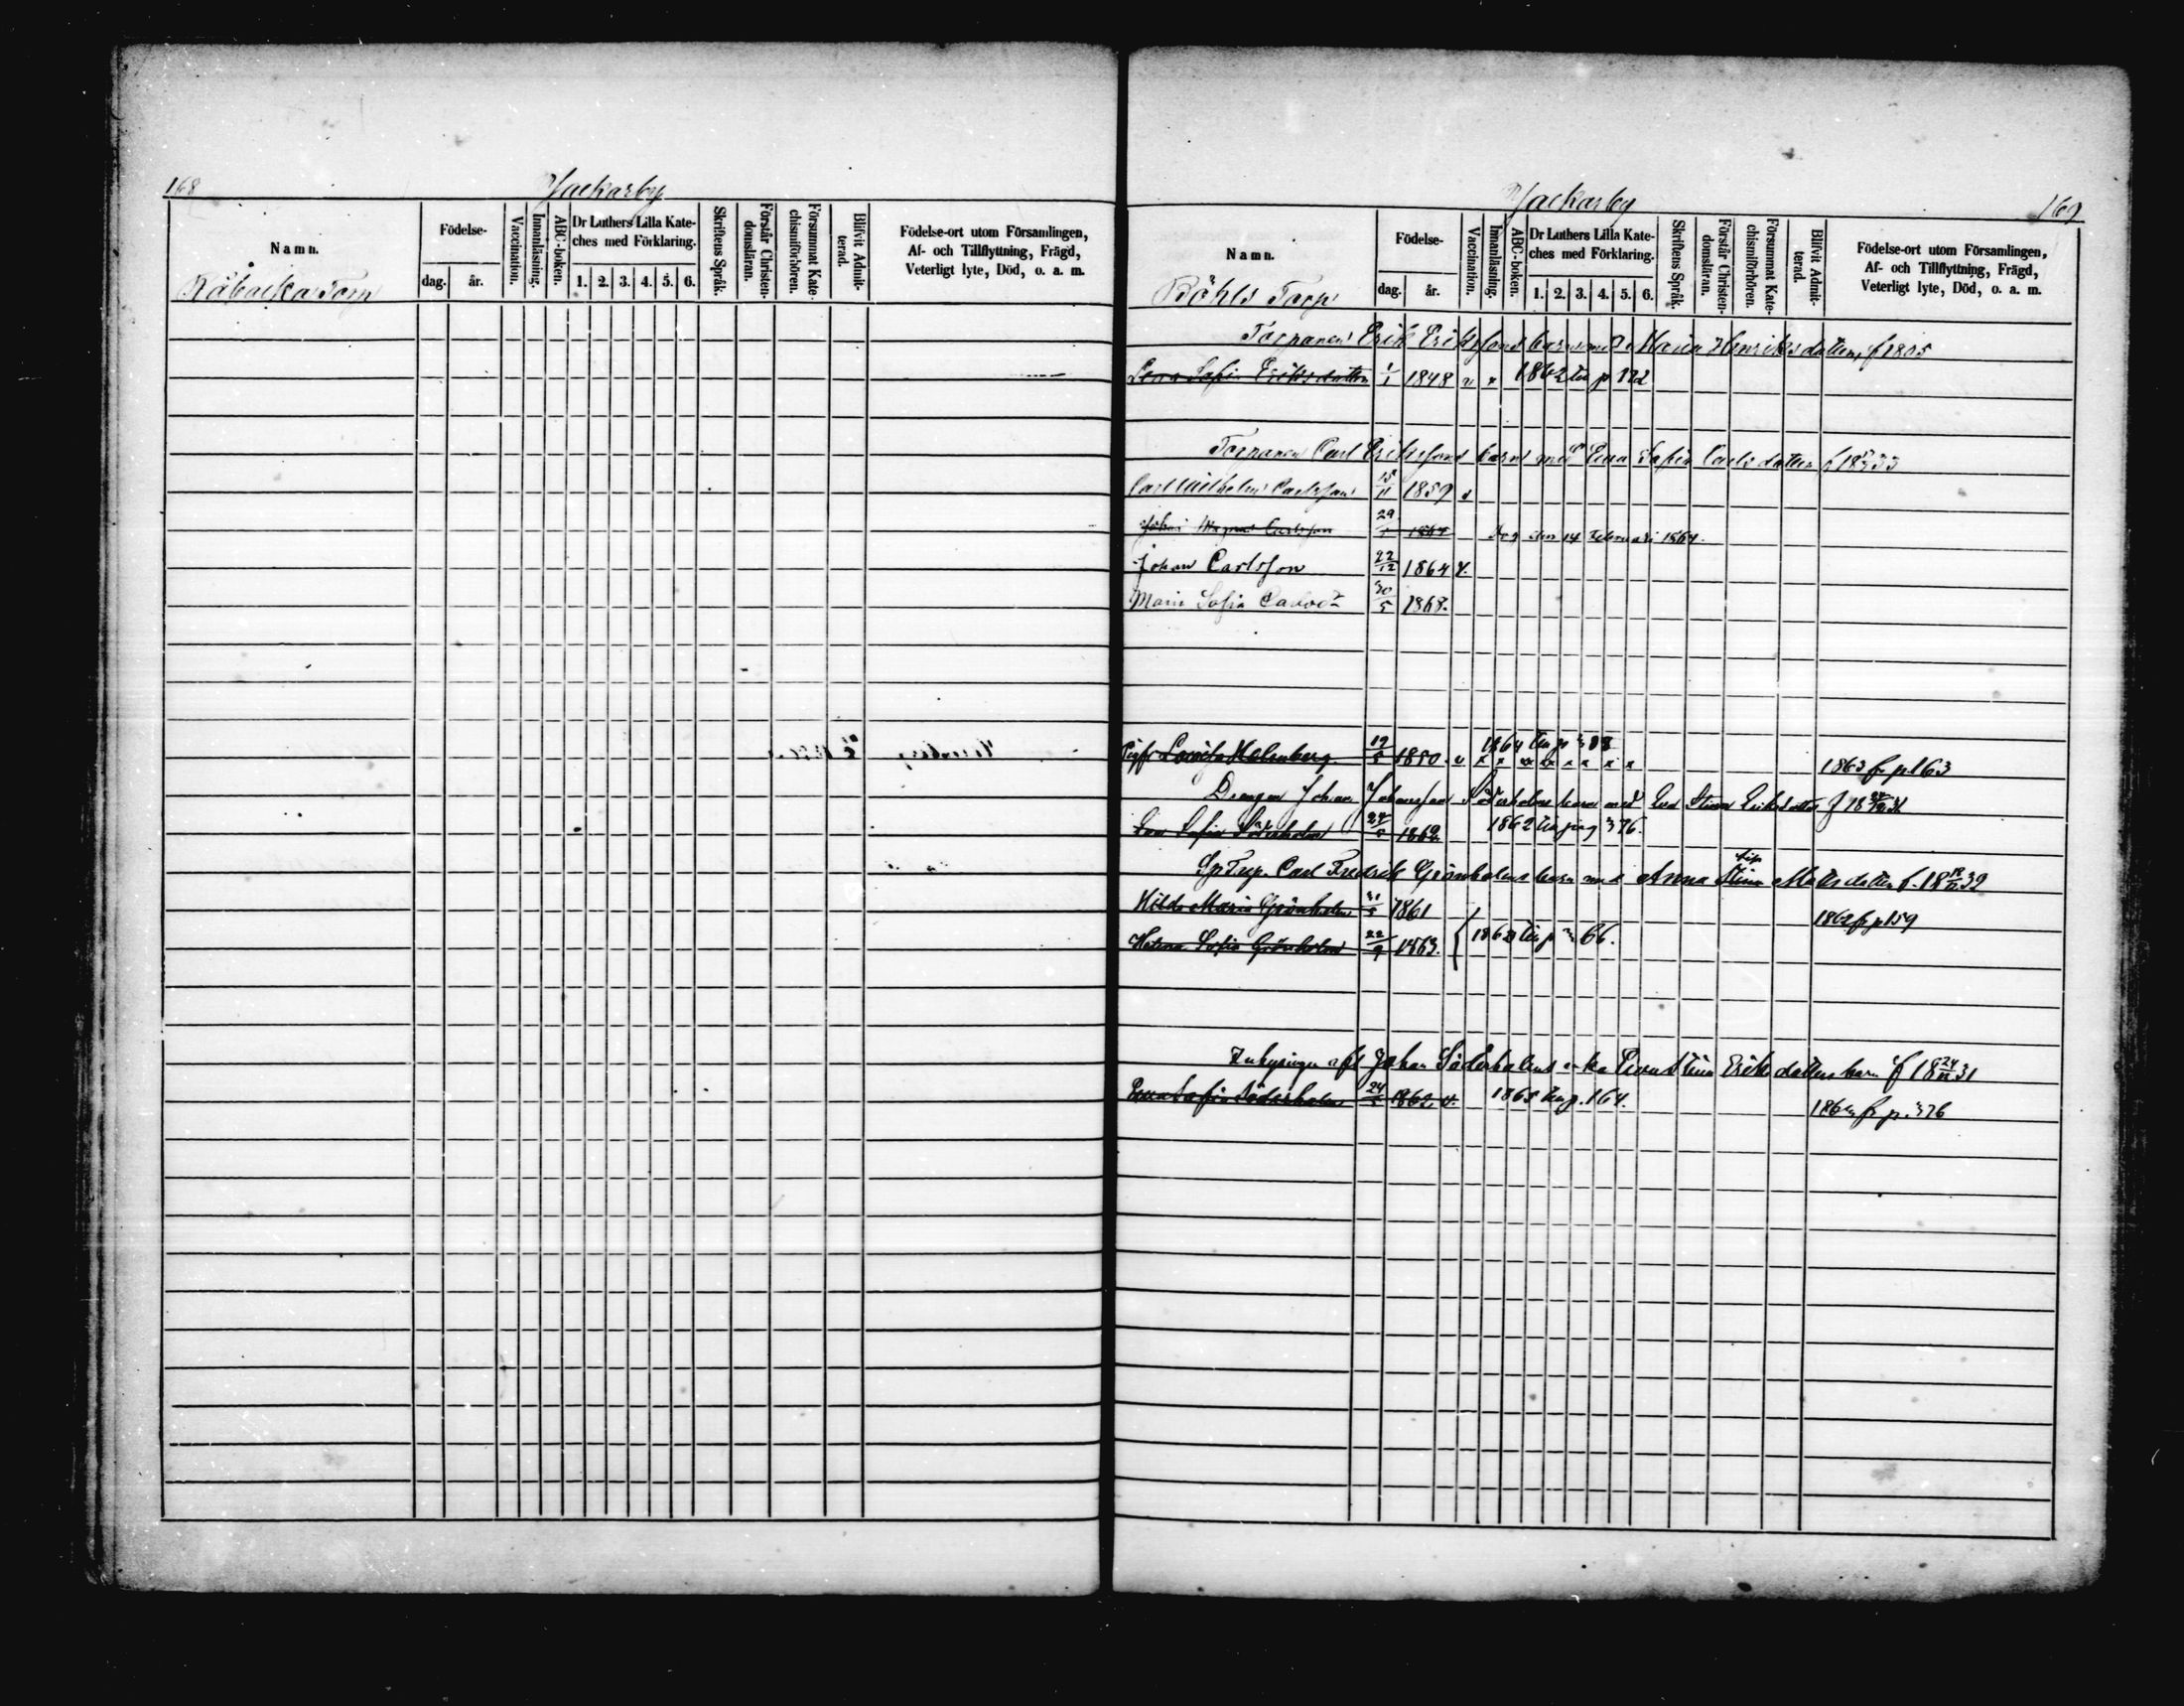 168
Jackarby
Namn.
Födelse-
dag.
år.
Vaccination.
Innanläsning.
ABC-boken.
Dr Luthers Lilla Kate-
ches med Förklaring.
1. 2. 3. 4. 5. 6.
Skriftens Språk.
Förstår Christen-
domsläran.
Försummat Kate-
chismiförhören.
Blifvit Admit-
terad.
Födelse-ort utom Församlingen,
Af- och Tillflyttning, Frägd,
Veterligt lyte, Död, o. a. m.
Råbacka Torp
Jackarby
169
Namn.
Födelse-
dag.
år.
Vaccination.
Innanläsning.
ABC-boken.
Dr Luthers Lilla Kate-
ches med Förklaring.
1. 2. 3. 4. 5. 6.
Skriftens Språk.
Förstår Christen-
domsläran.
Försummat Kate-
chismiförhören.
Blifvit Admit-
terad.
Födelse-ort utom Församlingen,
Af- och Tillflyttning, Frägd,
Veterligt lyte, Död, o. a. m.
Böhls Torp
Torparen Erik Erikssons barn med Maria Henriksdotter, f 1805
Lena Sofia Eriksdotter 1/1 1848 v x 1862 till p 172
Torparen Carl Erikssons barn med Eva Sofia Carlsdotter f 1833
Carl Wilhelm Carlsson 15/11 1859 v
Johan Magnus Carlsson 29 1864 Dog den 14 Februari 1864.
Johan Carlsson 22/12 1864 v.
Maria Sofia Carlsdr 30/5 1868.
Pig Lovisa Holmberg 19/5 1850. v 1864 till p x x x x x x x x 1863 fr p 163
Drengen Johan Johansson Söderholms barn med Eva Stina Eriksdotter f 18 24/12 31
Eva Sofia Söderholm 24/5 1862 1862 till pag 376.
Carl Fredrik Grönholms barn med Anna Stina Matsdotter f. 18 32
Hilda Maria Grönholm 31/5 1861 1862 fr p 159
Helena Sofia Grönholm 22/9 1863. till p 366.
Inhysingen afl Johan Söderholms enka Eva Stina Eriksdotters barn f 18 24/12 31
Eva Sofia Söderholm 24/5 1862 v. 1865 till p. 164. fr p. 376